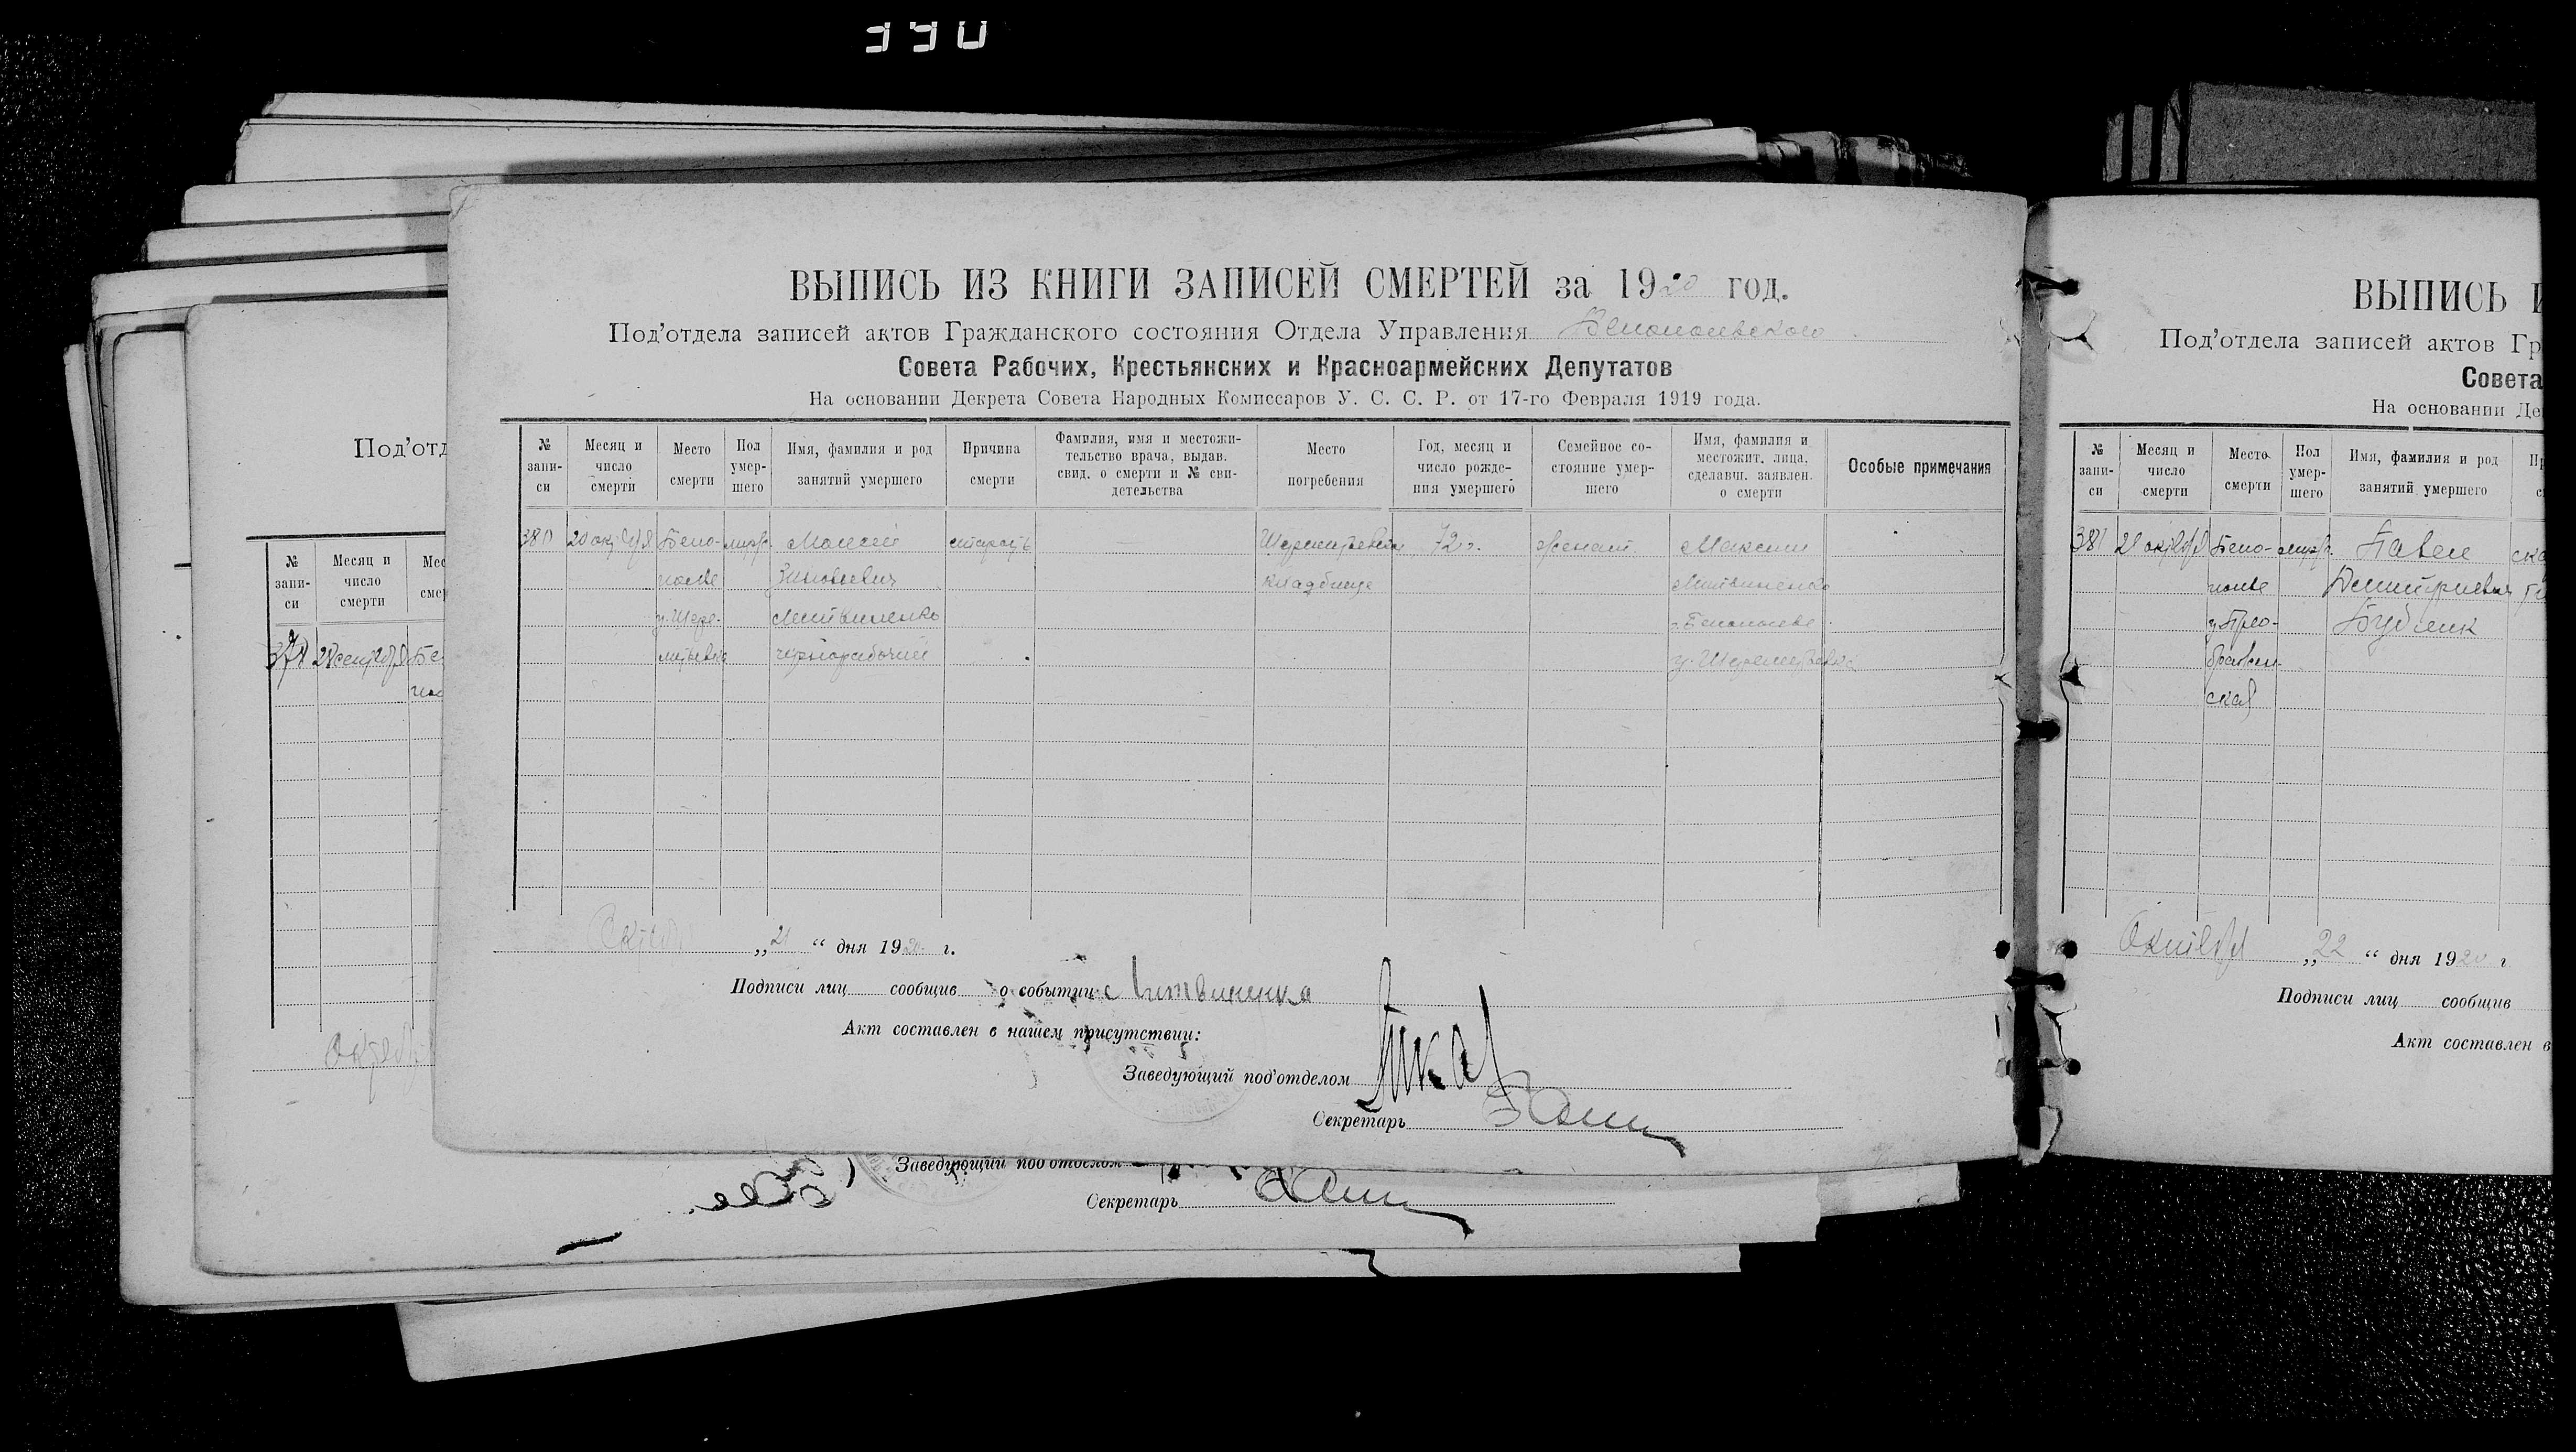 390
ВЫПИСЬ ИЗ КНИГИ ЗАПИСЕЙ СМЕРТЕЙ за 1920 год.
Под'отдела записей актов Гражданского состояния Отдела Управления
Совета Рабочих, Крестьянских и Красноармейских Депутатов
На основании Декрета Совета Народных Комиссаров У. С. С. Р. от 17-го Февраля 1919 года.
№ запи-си
Месяц и число смерти
Место смерти
Пол умер-шего
Имя, фамилия и род занятий умершего
Причина смерти
Фамилия, имя и местожи-тельство врача, выдав. свид. о смерти и № сви-детельства
Место погребения
Год, месяц и число рожде-ния умершего
Семейное со-стояние умер-шего
Имя, фамилия и местожит. лица, сделавш. заявлен. о смерти
Особые примечания
380 20 Бело- Моисей — 72 г. женат. Максим
полье Зиновьевич кладбище Литвиненко
у. Шере- Литвиненко г. Белополье
чернорабочий
„21“ дня 1920 г.
Подписи лиц сообщив о событии: Литвиненка
Акт составлен в нашем присутствии:
Заведующий под'отделом
Секретарь
Под'отд
№ запи-си
Месяц и число смерти
Мес
сме
Заведующий под'отделом
Секретарь
ВЫПИСЬ И
Под'отдела записей актов Гр
Совета
На основании Де
№ запи-си
Месяц и число смерти
Место смерти
Пол умер-шего
Имя, фамилия и род занятий умершего
381 Бело- Павел
полье Дмитриевич
у. Прео-
бражен-
ская
Октября „22“ дня 1920 г
Подписи лиц сообщив
Акт составлен в